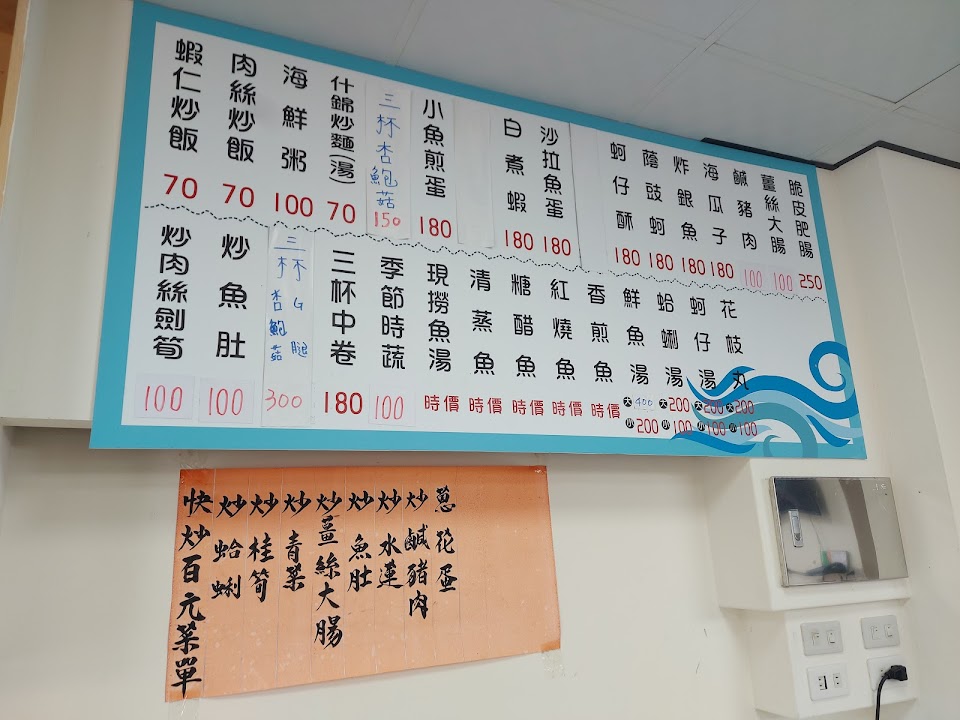 脆皮肥腸 250
薑絲大腸 100
鹹豬肉 100
海瓜子 180
炸銀魚 180
蔭豉蚵 180
蚵仔酥 180
沙拉魚蛋 180
白煮蝦 180
小魚煎蛋 180
三杯杏鮑菇 150
什錦炒麵(湯) 70
海鮮粥 100
肉絲炒飯 70
蝦仁炒飯 70
花枝丸 大200 小100
蚵仔湯 大200 小100
蛤蜊湯 大200 小100
鮮魚湯 大400 小200
香煎魚 時價
紅燒魚 時價
糖醋魚 時價
清蒸魚 時價
現撈魚湯 時價
季節時蔬 100
三杯中卷 180
三杯杏鮑菇G腿 300
炒魚肚 100
炒肉絲劍筍 100
蔥花蛋
炒鹹豬肉
炒水蓮
炒魚肚
炒薑絲大腸
炒青菜
炒桂筍
炒蛤蜊
快炒百元菜單